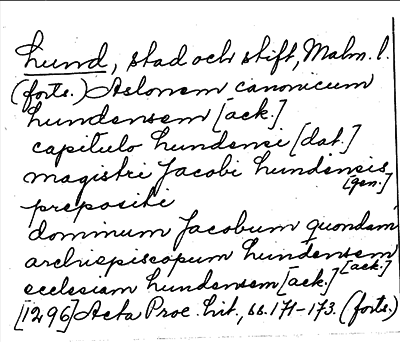 Lund, stad och stift, Malm. l.
(forts.) Aslonem canonicum
Lundensem [ack.]
capitulo Lundensi [dat.]
magistri Jacobi Lundensis
[gen.]
prepositi
dominum Jacobum quondam
archiepiscopum Lundensem
[ack.]
ecclesiam Lundensem [ack.]
[1296] Acta Proc. lit., ss. 171-173. (forts.)